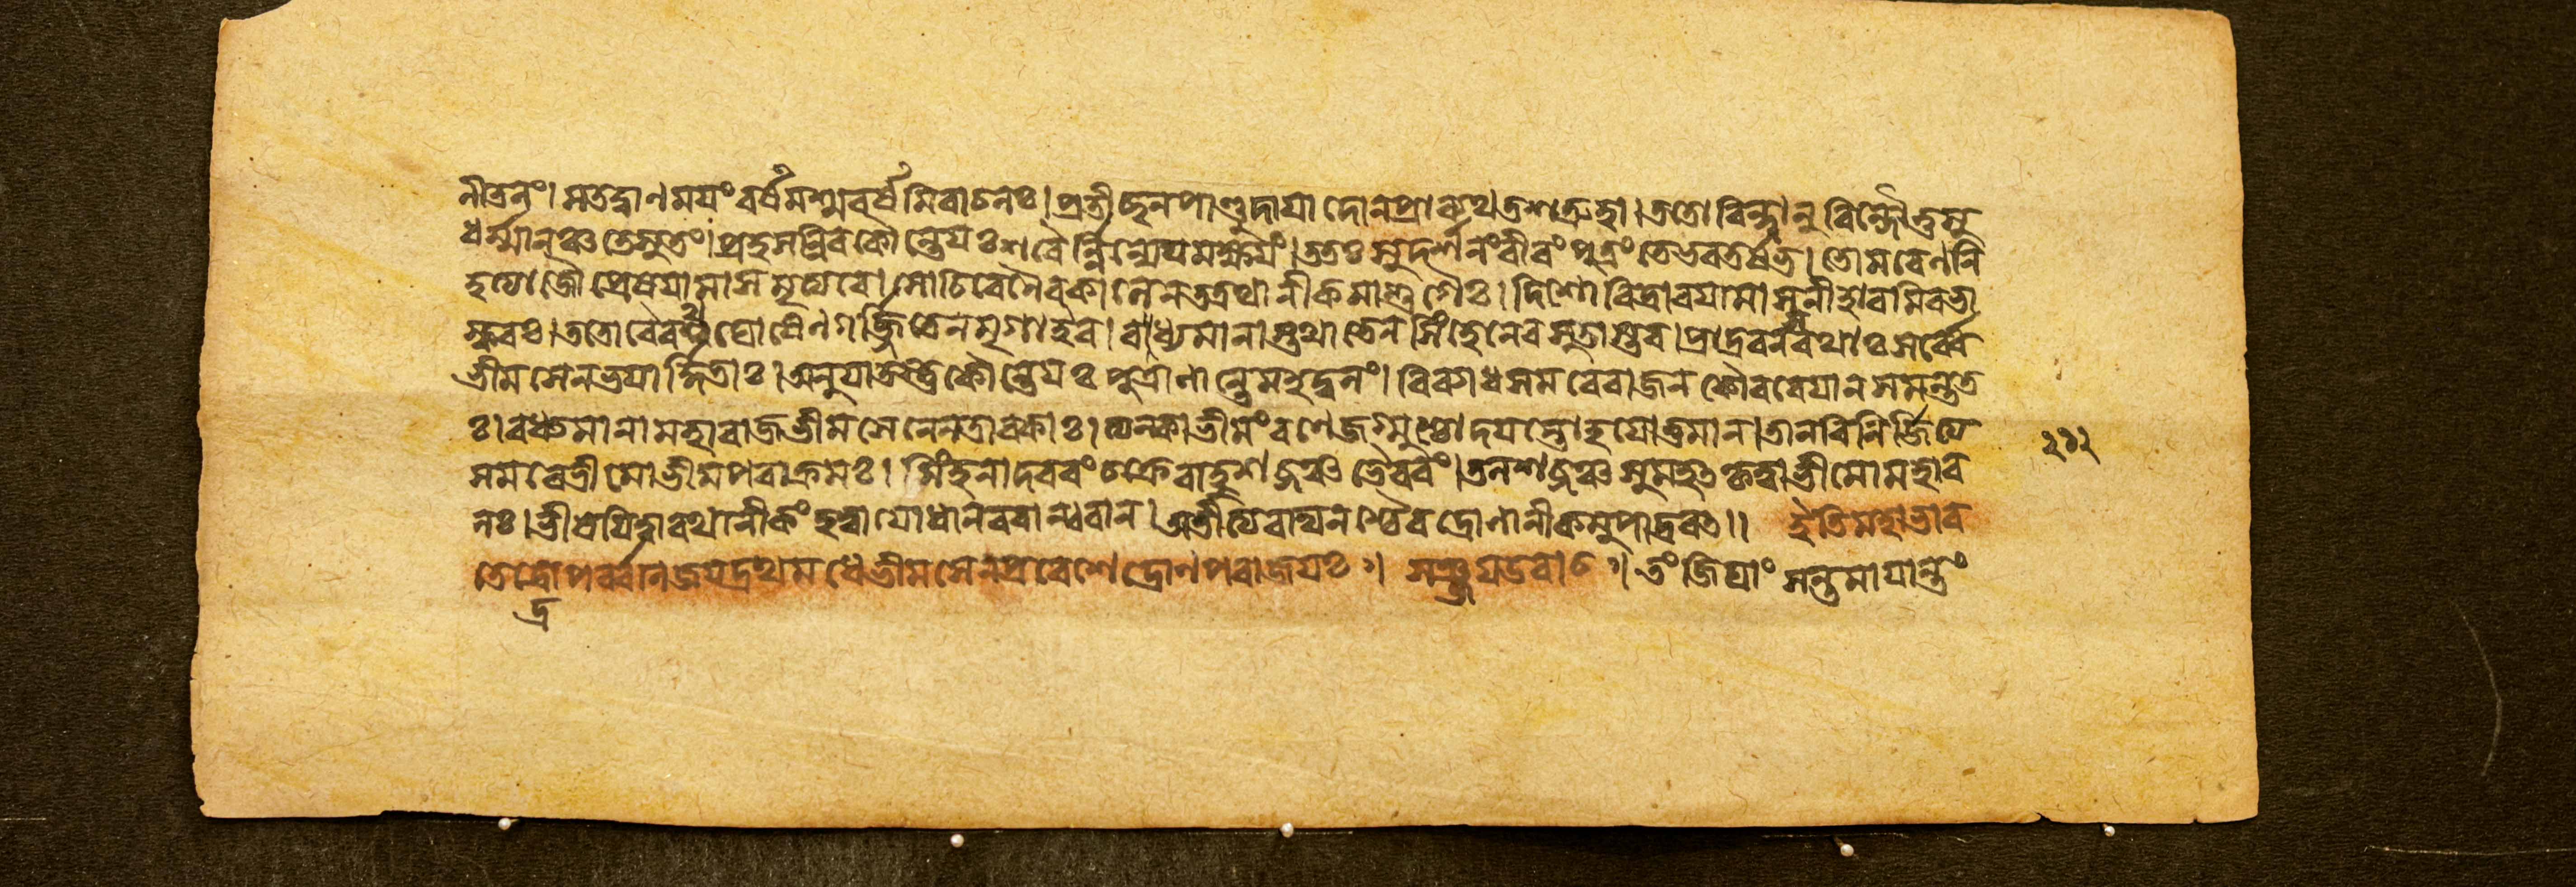 লীবলং। স তদ্বাণময়ং বর্ষমশ্মবর্ষমিবাচলঃ। প্রতীচ্ছন পাণ্ডুদায়াদো ন প্রাব্যথত শত্রুহা। ততো বিন্দানুবিন্দৌ তু সু
ধর্ম্মাণঞ্চ তে সুতং। প্রহসন্নিব কৌন্তেয়ঃ শরৈর্ন্নিন্যে যমক্ষয়ং। ততঃ সুদর্শনং বীরং পুত্রং তে ভরতর্ষভ। তোমরেণ নি
হত্যাজৌ প্রেষয়ামাস মৃত্যবে। সোচিরেণৈব কালেন তদ্রথানীকমাশুগৈঃ। দিশো বিদ্রাবয়ামাস নীহারমিব ভা
স্করঃ। ততো বৈ রথঘোষেণ গর্জ্জিতেন মৃগা ইব। বধ্যমানাস্তথা তেন সিংহেনেব সুতাস্তব। প্রাদ্রবন সরথাঃ সর্ব্বে
ভীমসেনভয়ার্দ্দিতাঃ। অনুযাতস্তু কৌন্তেয়ঃ পুত্রাণান্তে মহদ্বলং। বিব্যাধ সমরে রাজন কৌরবেয়ান সমন্তত
ঃ। বধ্যমানা মহারাজ ভীমসেনেন তাবকাঃ। ত্যক্ত্বা ভীমং রণে জগ্মুশ্চোদয়ন্তো হয়োত্তমান। তান বিনির্জ্জিত্য ২৩২
সমরে ভীমো ভীমপরাক্রমঃ। সিংহনাদরবং চক্রে বাহুশব্দঞ্চ ভৈরবং। তলশব্দঞ্চ সুমহৎ কৃত্বা ভীমো মহাব
লঃ। ভীষয়িত্বা রথানীকং হত্বা যোধান বরান্বরান। ব্যতীত্য রথিনশ্চৈব দ্রোণানীকমুপাদ্রবৎ।। ইতি মহাভার
তে দ্রোণপর্ব্বণি জয়দ্রথবধে ভীমসেনপ্রবেশে দ্রোণপরাজয়ঃ। সঞ্জয় উবাচ। তং